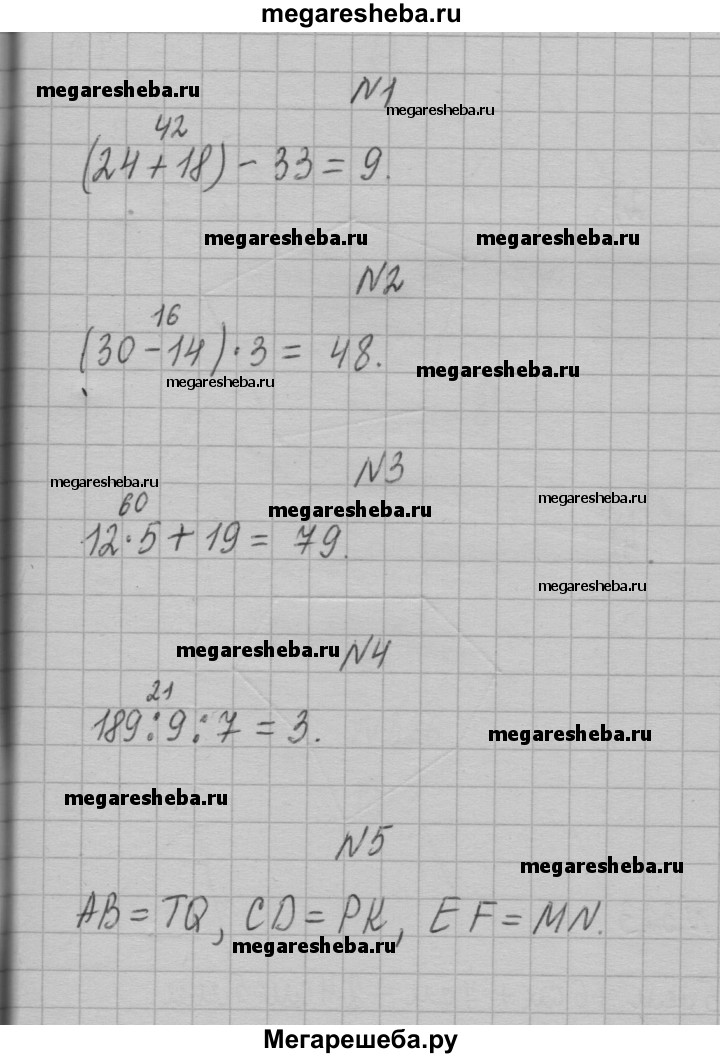 megaresheba.ru
megaresheba.ru
N1
megaresheba.ru
42
(24+18) - 33 = 9.
megaresheba.ru megaresheba.ru
N2
16
(30-14)·3 = 48.
megaresheba.ru
megaresheba.ru
N3
megaresheba.ru
megaresheba.ru
60
megaresheba.ru
12·5 + 19 = 79.
megaresheba.ru
megaresheba.ru
N4
21
189:9:7 = 3.
megaresheba.ru
megaresheba.ru
N5
megaresheba.ru
AB = TQ, CD = PK, EF = MN.
megaresheba.ru
Мегарешеба.ру